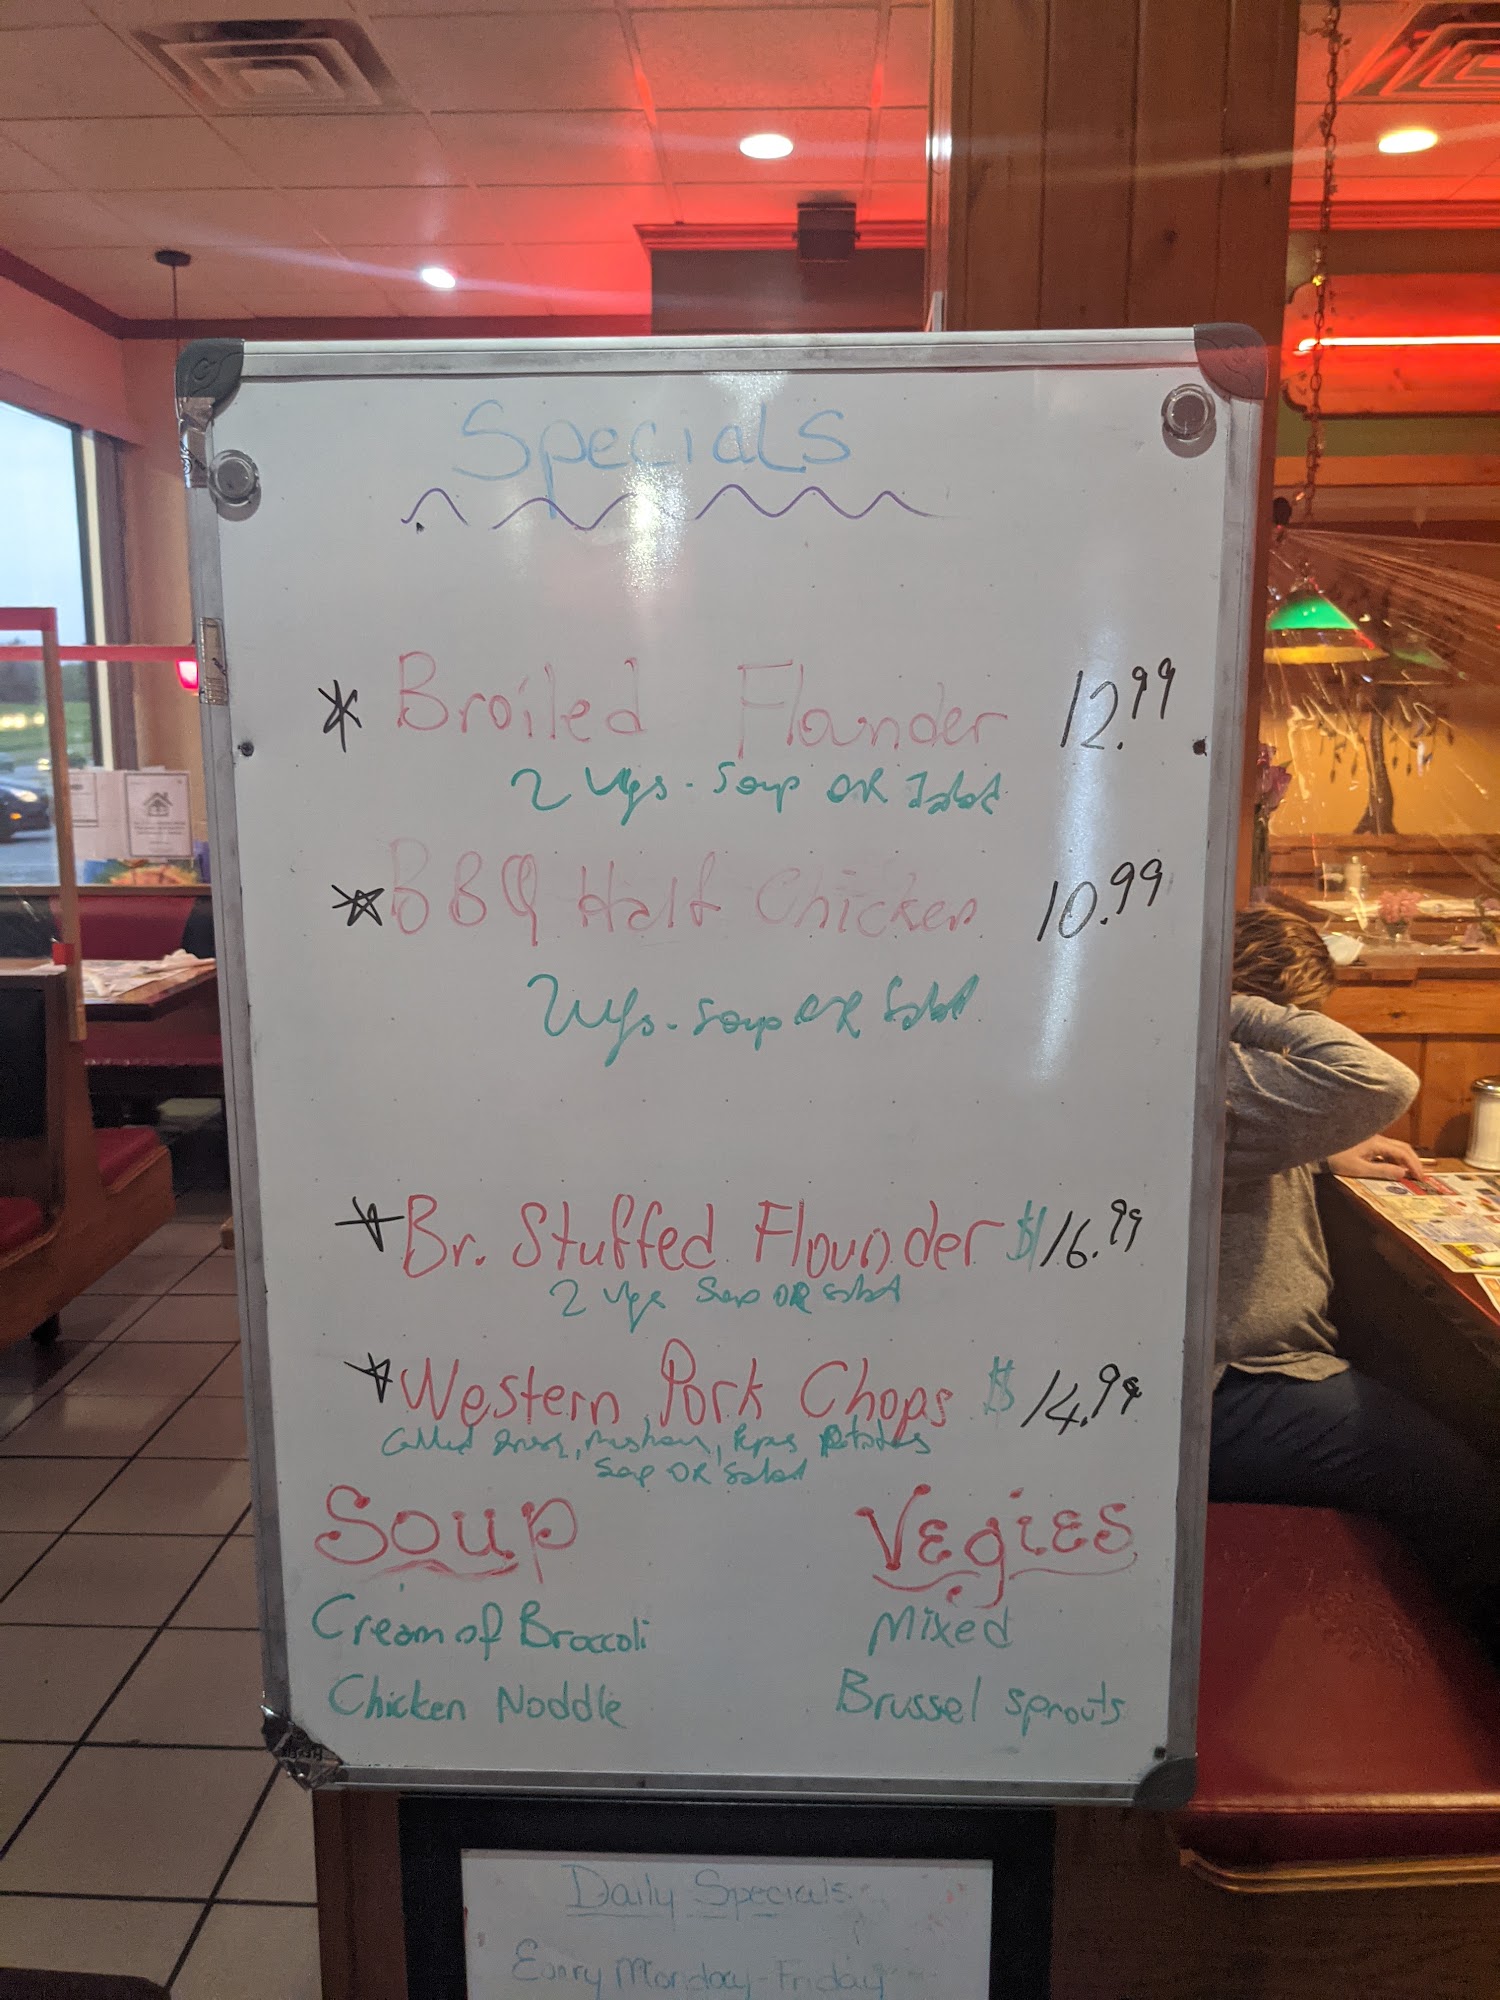 Specials
Broiled Flounder 12.99
2 Vgs. Soup OR Salad
BBQ Half Chicken 10.99
2 Vgs. Soup OR Salad
Br. Stuffed Flounder $16.99
2 Vgs Soup OR Salad
Western Pork Chops $14.99
Potatoes
Soup OR Salad
Soup Vegies
Cream of Broccoli Mixed
Chicken Noddle Brussel sprouts
Daily Specials
Every Monday-Friday